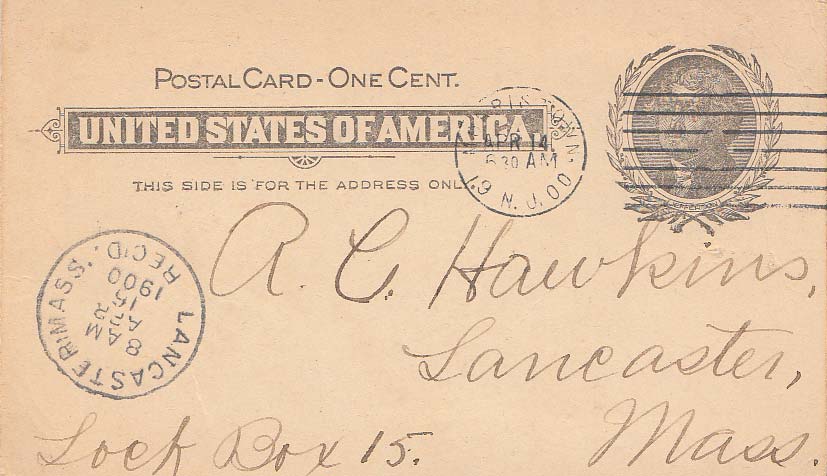 POSTAL CARD - ONE CENT.
UNITED STATES OF AMERICA.
THIS SIDE IS FOR THE ADDRESS ONLY
APR 14
6 30 AM
19 N. J. 00
JEFFERSON
A. C. Hawkins,
Lancaster,
Mass.
Lock Box 15.
LANCASTER, MASS.
8 AM
APR
15
1900
REC'D.